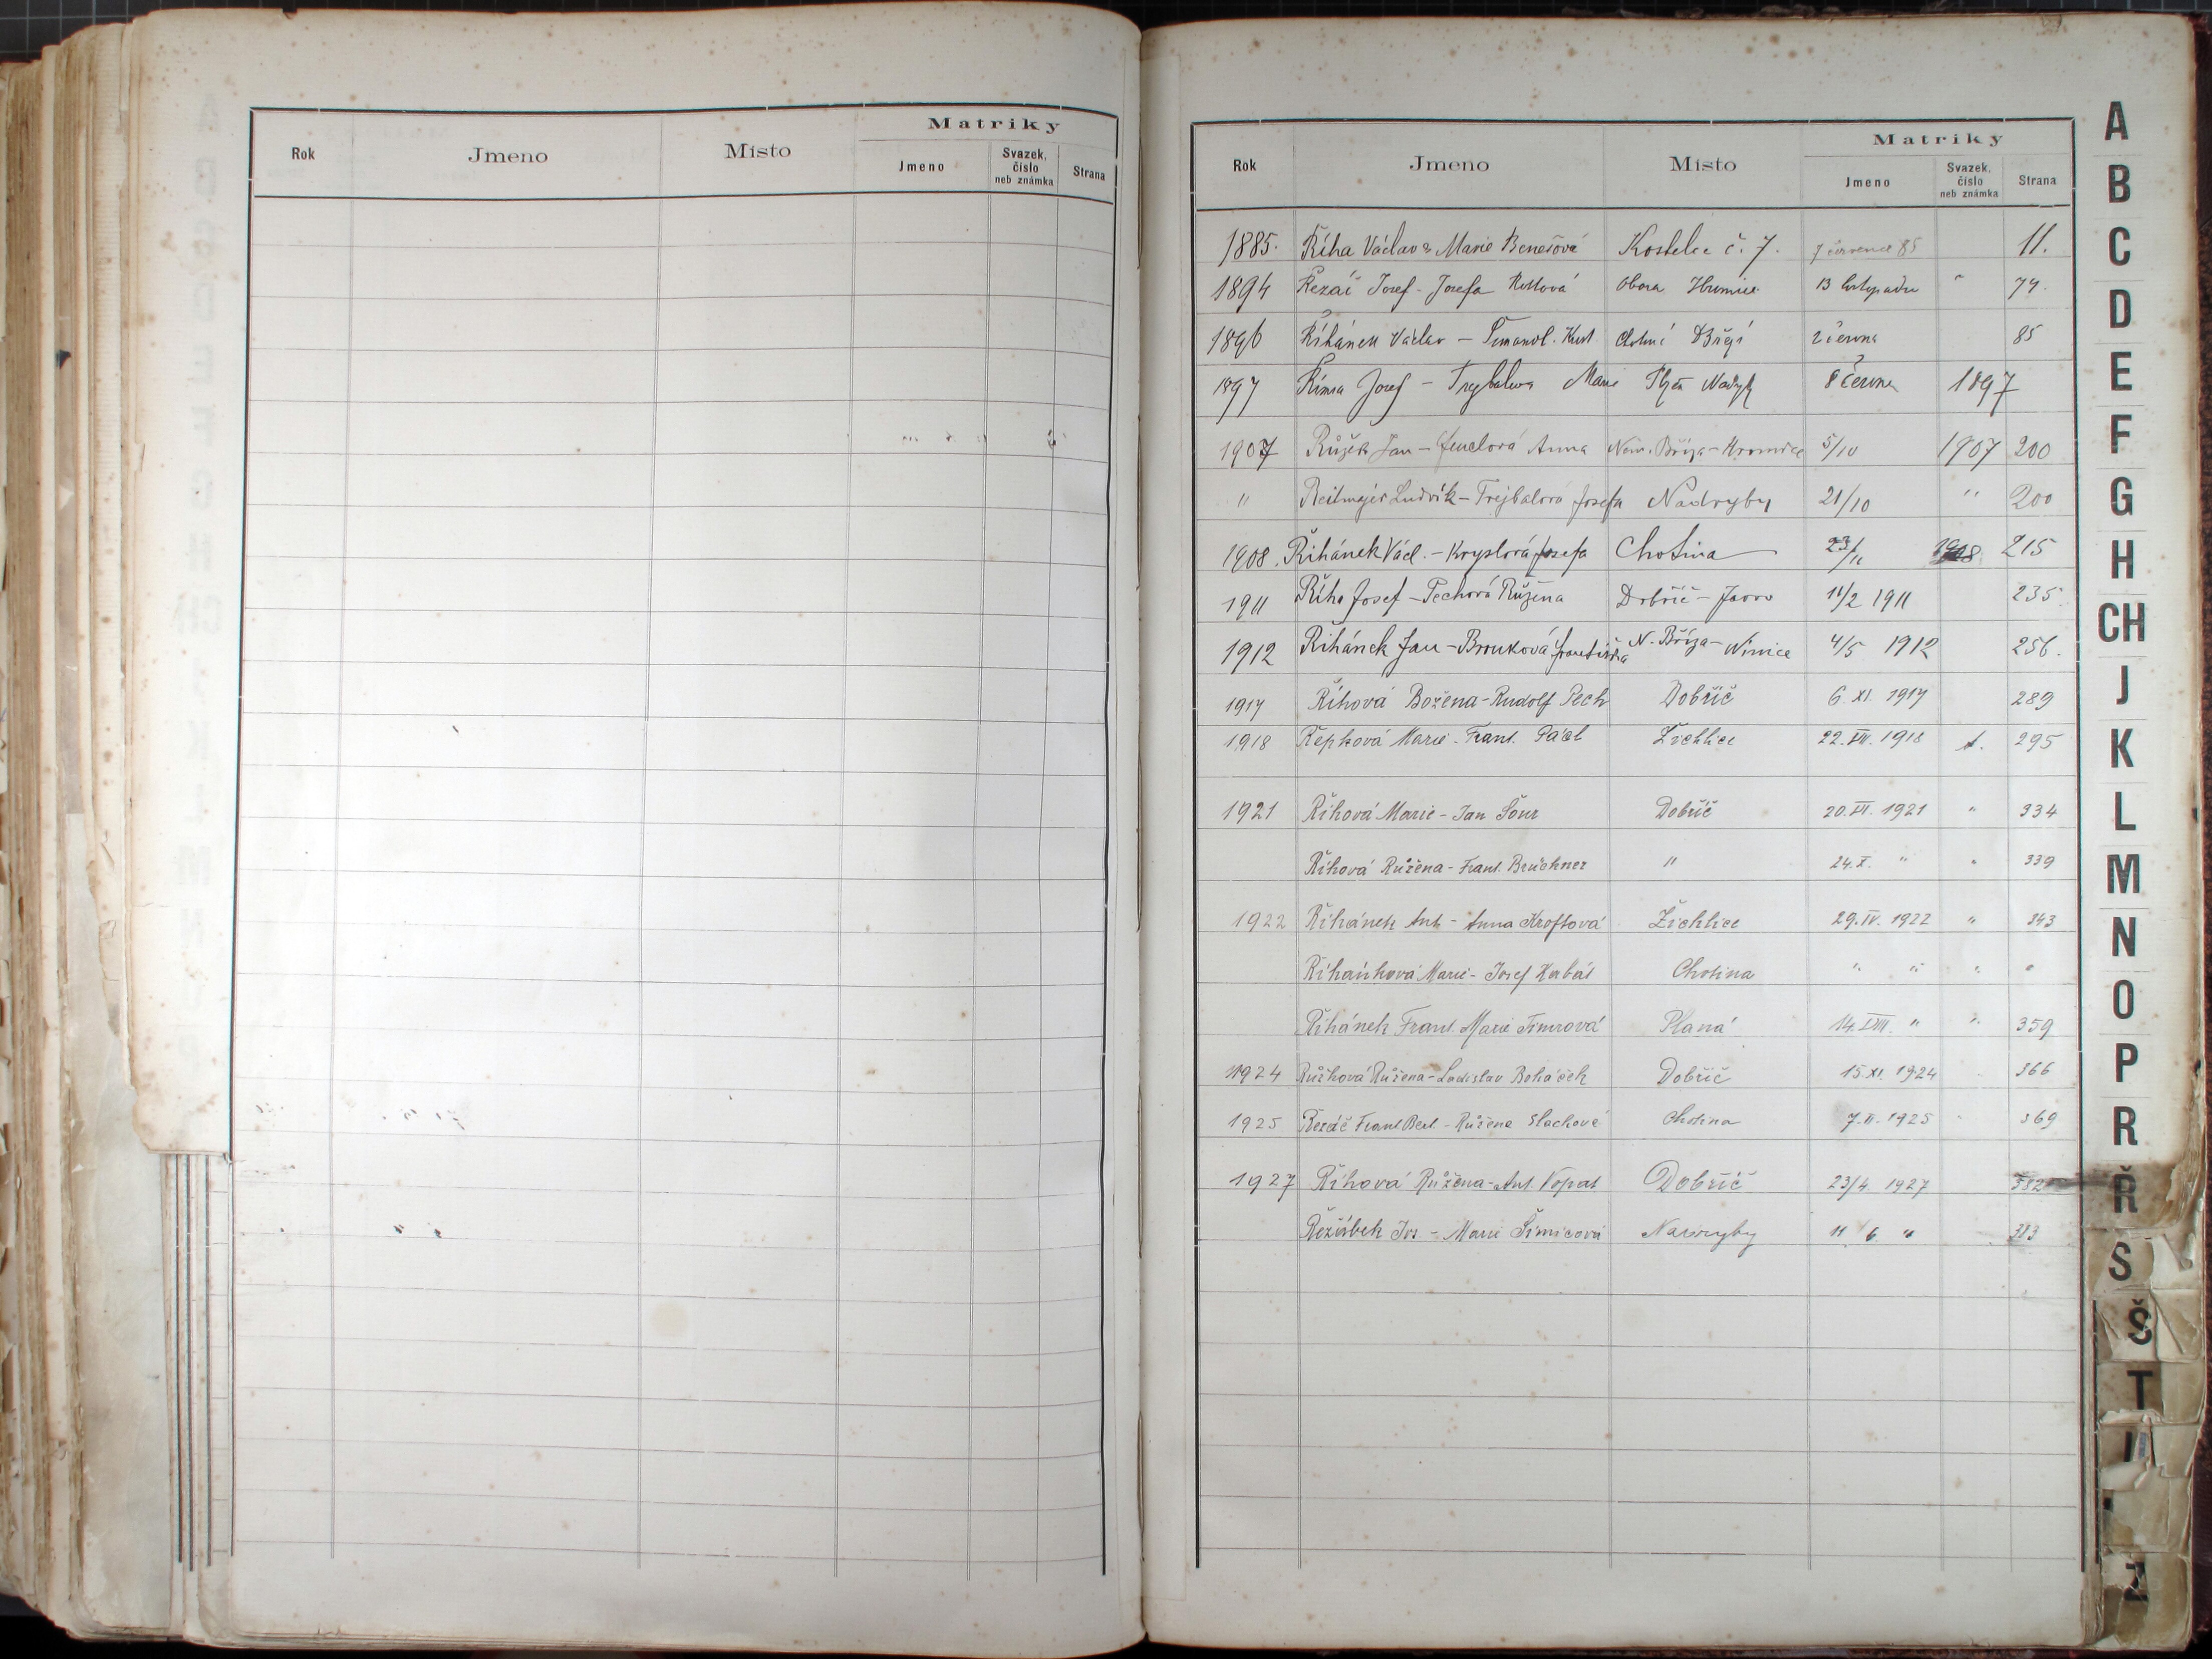 Matriky
Rok Jmeno Misto Jmeno Svazek, čislo neb známka Strana
Matriky
Rok Jmeno Misto Jmeno Svazek, čislo neb známka Strana
1885. Říha Václav & Marie Benešová Kostelec č. 7. 7 července 85 11.
1894 Řezáč Josef - Josefa Obora 13 listopadu " 74.
1896 Řihánek Václav - Břízí 2 června 85
1897 Josef - Marie Plzeň 8 června 1897
1907 Růžek Jan - Anna Nem. Bříza - Hromnice 5/10 1907 200
" Reitmajer Ludvík - Trejbalová Josefa Nadryby 21/10 " 200
1908. Řihánek Václ. - Josefa Chotina 23/11 215
1911 Říha Josef - Pechová Růžena Dobříč - 11/2 1911 235
1912 Řihánek Jan - Brouková Františka N. Bříza - 4/5 1912 256.
1917 Říhová Božena - Rudolf Pech Dobříč 6. XI. 1917 289
1918 Řepková Marie - Frant. Žichlice 22. VII. 1918 295
1921 Říhová Marie - Jan Šour Dobříč 20. VI. 1921 " 334
Říhová Růžena - Frant. Brückner " 24. X. " " 339
1922 Řihánek Ant. - Anna Kroftová Žichlice 29. IV. 1922 " 343
Řihánková Marie - Josef Chotina " " " "
Řihánek Frant. Marie Planá 14. " " 359
1924 Růžková Růžena - Ladislav Boháček Dobříč 15. XI. 1924 366
1925 Řezáč Frant. - Růžena Chotina 7. II. 1925 " 369
1927 Říhová Růžena - Ant. Vopat Dobříč 23/4 1927 382
Jos. - Marie Šimicová Nadryby 11 6 " 383
A
B
C
D
E
F
G
H
CH
J
K
L
M
N
O
P
R
Ř
S
Š
T
Z